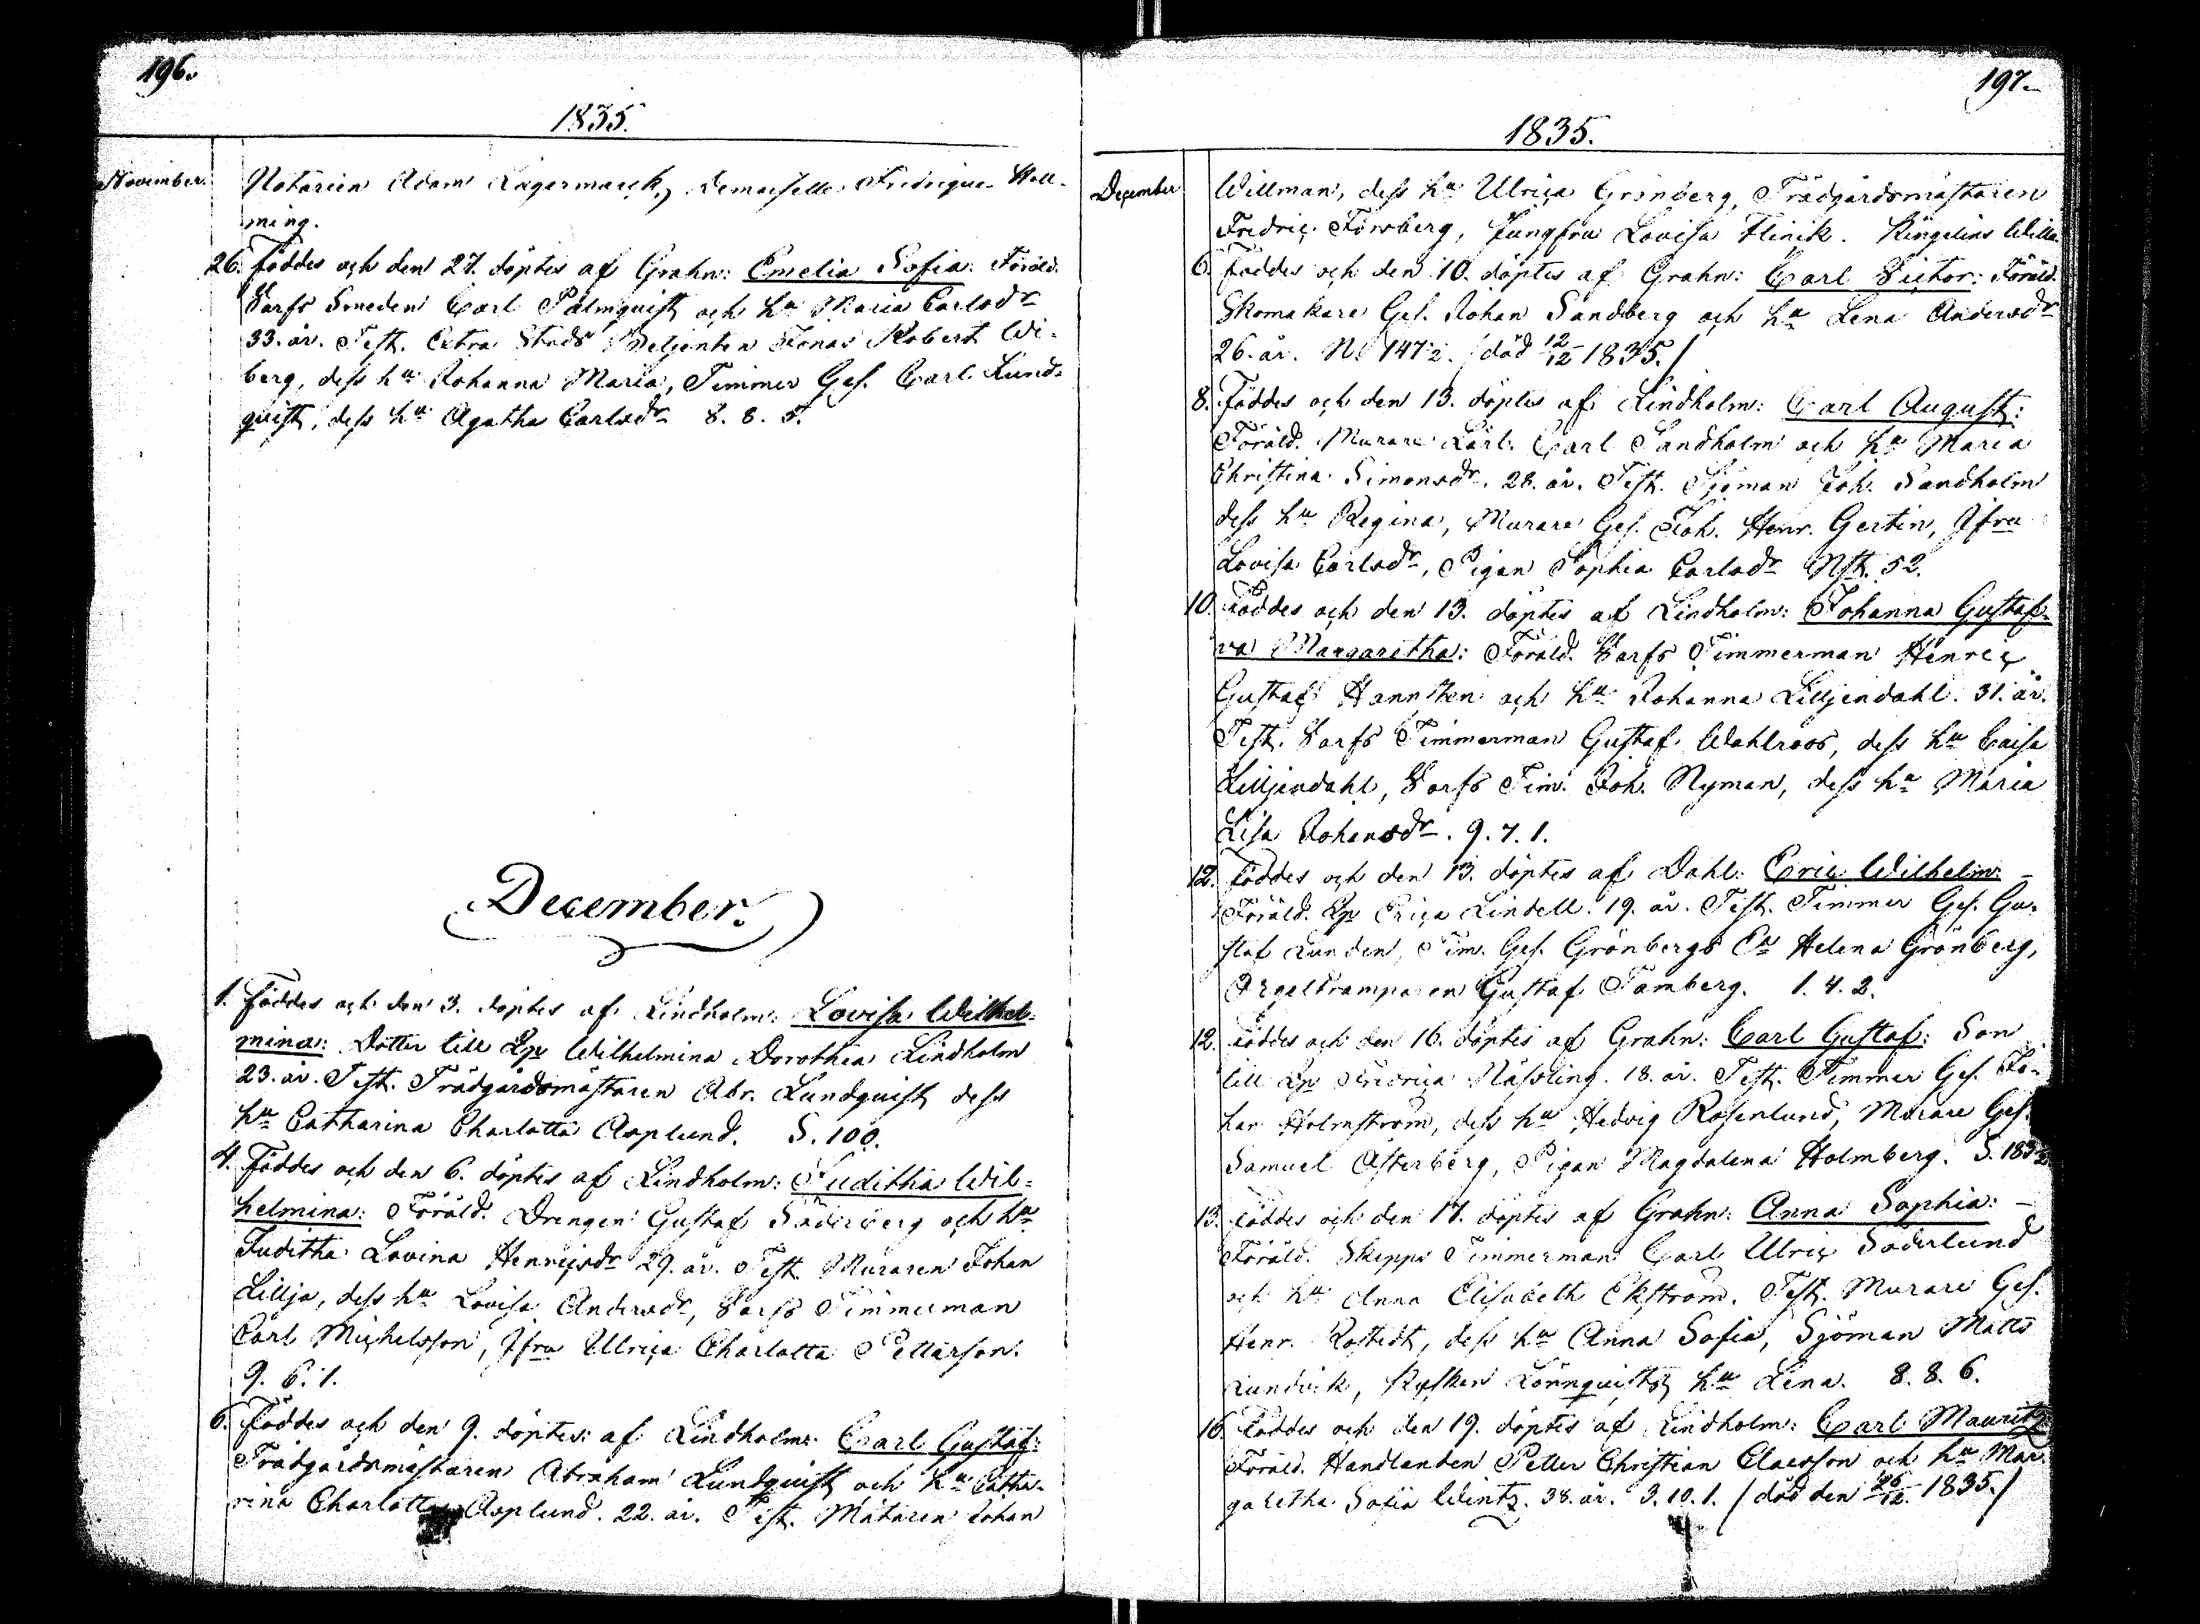 196.
1835.
November.
Notarien Adam Lagermarck, Demoiselle Fredrique Hell-
ming.
26. Föddes och den 27. döptes af Grahn: Emelia Sofia: Föräld.
Varfs Smeden Carl Palmquist och hu Maria Carlsdr
33. år. Test. Extra Stads Betjenten Jonas Robert Wi-
berg, dess hu Johanna Maria, Timmer Ges. Carl Lund-
quist, dess hu Agatha Carlsdr 8. 8. 5.
December.
1. Föddes och den 3. döptes af Lindholm: Lovisa Wilhel-
mina: Dotter till Lp Wilhelmina Dorothea Lindholm
23. år. Test. Trädgårdsmästaren Abr. Lundquist dess
hu Catharina Charlotta Asplund. S. 100.
4. Föddes och den 6. döptes af Lindholm: Juditha Wil-
helmina: Föräld. Drengen Gustaf Söderberg och hu
Juditha Lovina Henricsdr 29. år. Test. Muraren Johan
Lillja, dess hu Lovisa Andersdr, Varfs Timmerman
Carl Michelsson, Jfru Ulrica Charlotta Pettersson.
9. 6. 1.
6. Föddes och den 9. döptes af Lindholm: Carl Gustaf:
Trädgårdsmästaren Abraham Lundquist och hu Catha-
rina Charlotta Asplund. 22. år. Test. Mätaren Johan
197.
1835.
December
Willman, dess hu Ulrica Grönberg, Trädgårdsmästaren
Fredric Forsberg, Jungfru Lovisa Flinck. Ringelins Willa
6. Föddes och den 10. döptes af Grahn: Carl Victor: Föräld.
Skomakare Ges. Johan Sandberg och hu Lena Andersdr
26. år. N. 147½. /död 12/12 1835./
8. Föddes och den 13. döptes af Lindholm: Carl August:
Föräld. Murare Lärl. Carl Sandholm och hu Maria
Christina Simonsdr. 28. år. Test. Sjöman Joh. Sandholm
dess hu Regina, Murare Ges. Joh. Henr. Gertin, Jfru
Lovisa Carlsdr, Pigan Sophia Carlsdr Nst. 52.
10. Föddes och den 13. döptes af Lindholm: Johanna Gustaf-
va Margaretha: Föräld. Varfs Timmerman Henric
Gustaf Hannsten och hu Johanna Lilljendahl. 31. år.
Test. Varfs Timmerman Gustaf Wahlroos, dess hu Caisa
Lilljendahl, Varfs Tim. Joh. Nyman, dess hu Maria
Lisa Johansdr. 9. 7. 1.
12. Föddes och den 13. döptes af Dahl: Eric Wilhelm: –
Föräld. Lp Erica Lindell. 19. år. Test. Timmer Ges. Gu-
staf Lunden, Tim. Ges. Grönbergs Ea Helena Grönberg,
Orgeltramparen Gustaf Tamberg. 1. 4. 2.
12. Föddes och den 16. döptes af Grahn: Carl Gustaf: Son
till Lp Fredrica Hässling. 18. år. Test. Timmer Ges. Jo-
han Holmström, dess hu Hedvig Rosenlund, Murare Ges.
Samuel Österberg, Pigan Magdalena Holmberg. S. 183½
13. Föddes och den 17. döptes af Grahn: Anna Sophia: –
Föräld. Skepps Timmerman Carl Ulric Söderlund
och hu Anna Elisabeth Ekström. Test. Murare Ges.
Henr. Rostedt, dess hu Anna Sofia, Sjöman Matts
Lundvik, Kusken Lönnquists hu Lena. 8. 8. 6.
16. Föddes och den 19. döptes af Lindholm: Carl Mauritz
Föräld. Handlanden Petter Christian Claesson och hu Mar-
garetha Sofia Wintz. 38. år. 3. 10. 1. /död den 26/12. 1835./